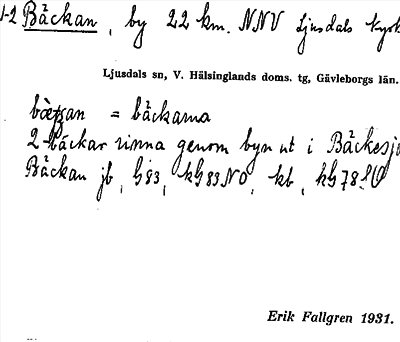 1-2 Bäckan, by 22 km. NNV Ljusdals kyrk
Ljusdals sn, V. Hälsinglands doms. tg, Gävleborgs län.
= bäckarna
2 bäckar rinna genom byn ut i Bäckesjö
Bäckan jb, G 83, kG 83 NO, kb, kG 78 SO
Erik Fallgren 1931.